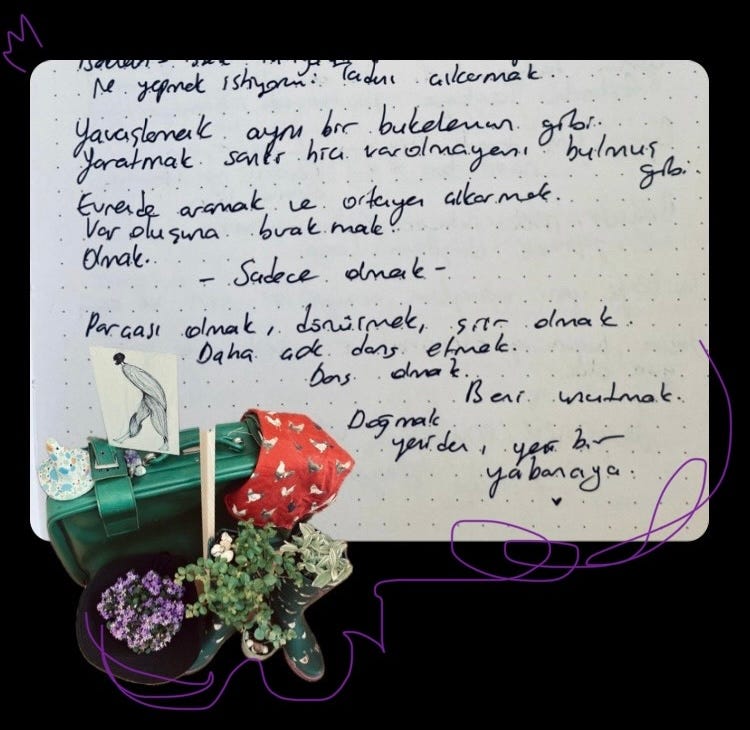 Ne yapmak istiyorum: Tadını çıkarmak.
Yavaşlamak aynı bir bukelemun gibi.
Yaratmak sanki hiç varolmayanı bulmuş gibi.
Evrende aramak ve ortaya çıkarmak.
Var oluşuna bırakmak.
Olmak.
- Sadece olmak -
Parçası olmak, dönüşmek, şiir olmak.
Daha çok dans etmek.
Dans olmak.
Beni unutmak.
Doğmak
yeniden, yeni bir
yabancıya.